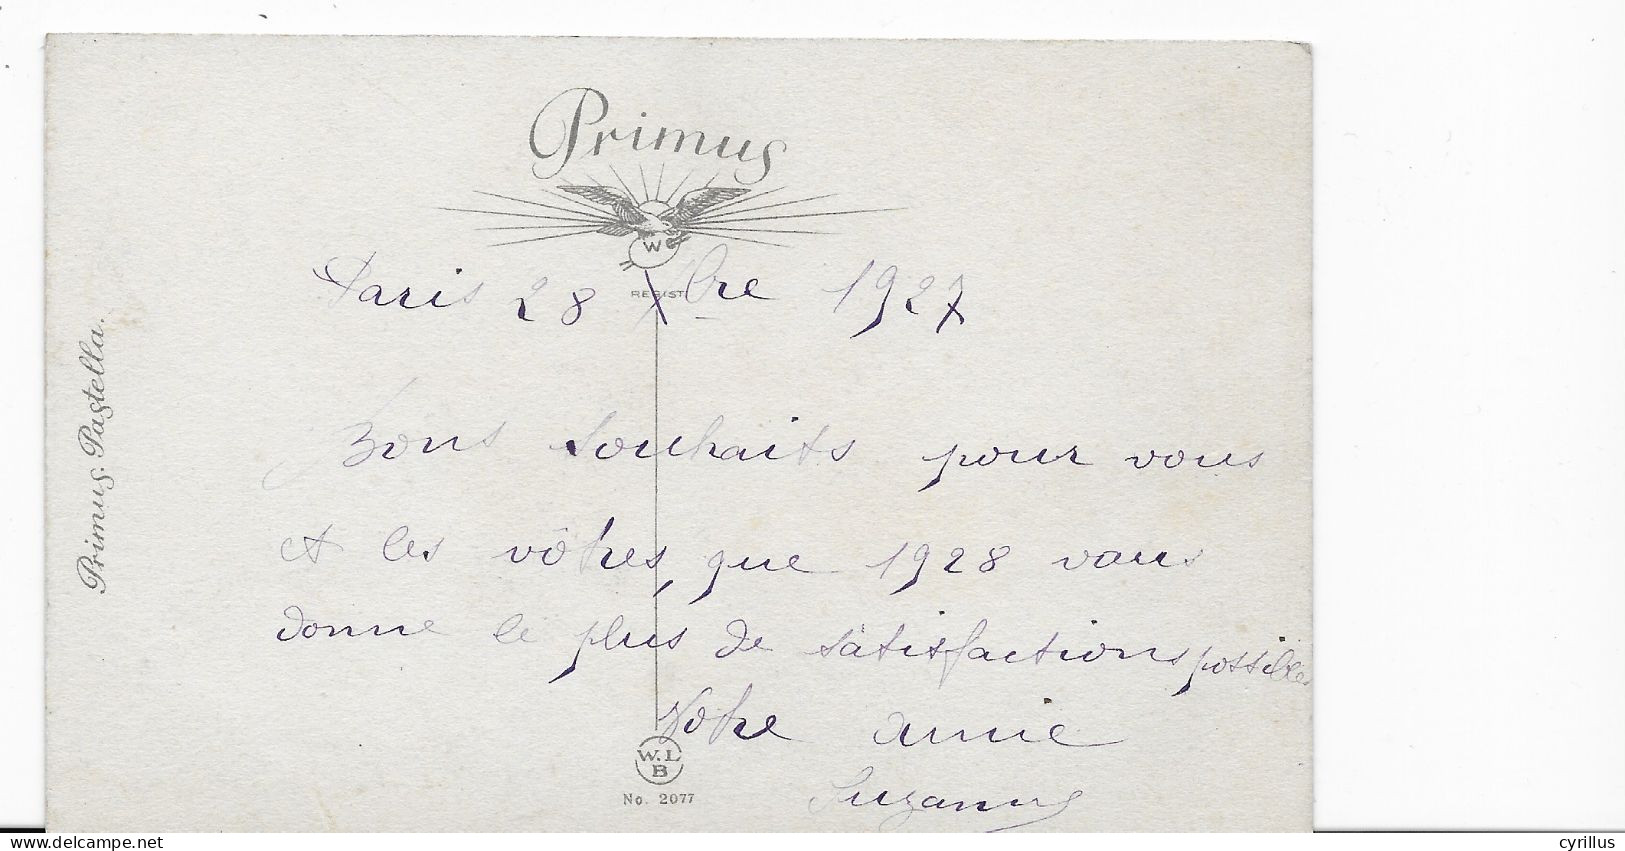 Primus
W
REGIST
Paris 28 Xbre 1927
Bons souhaits pour vous
et les vôtres, que 1928 vous
donne le plus de satisfactions possibles
Votre amie
Suzanne
W.L
B
No. 2077
Primus Pastella.
cyrillus